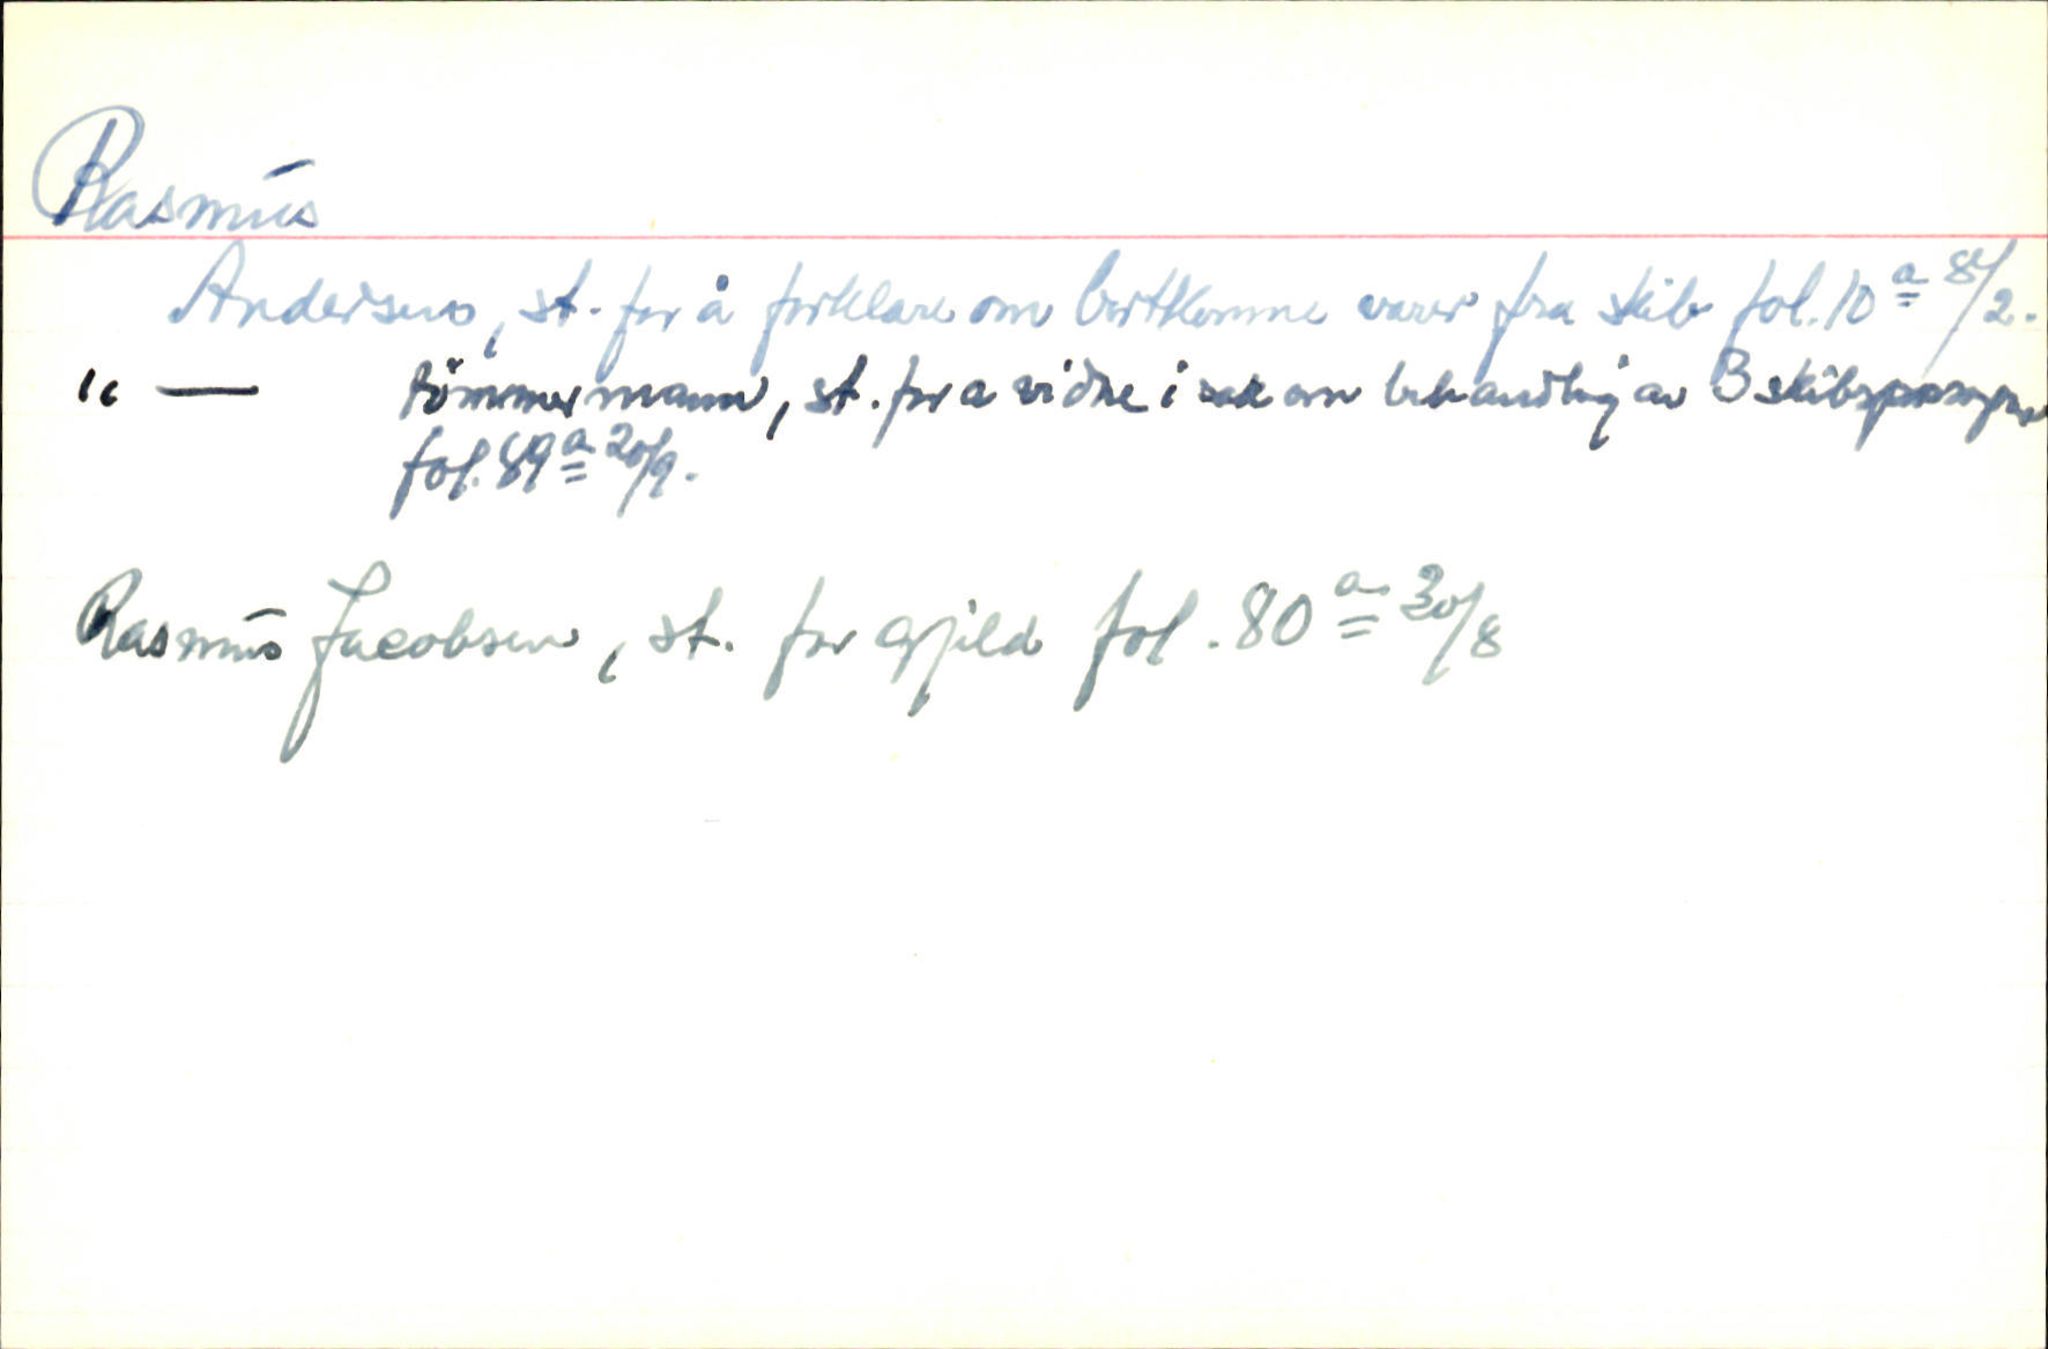 Rasmus
Andersen, st. for å forklare om bortkomne varer fra skib fol. 10 a 8/2.
" — tömmermann, st. for a vidne i sak om behandling av 3
fol. 89 a 20/9.
Rasmus Jacobsen, st. for gjeld fol. 80 a 30/8